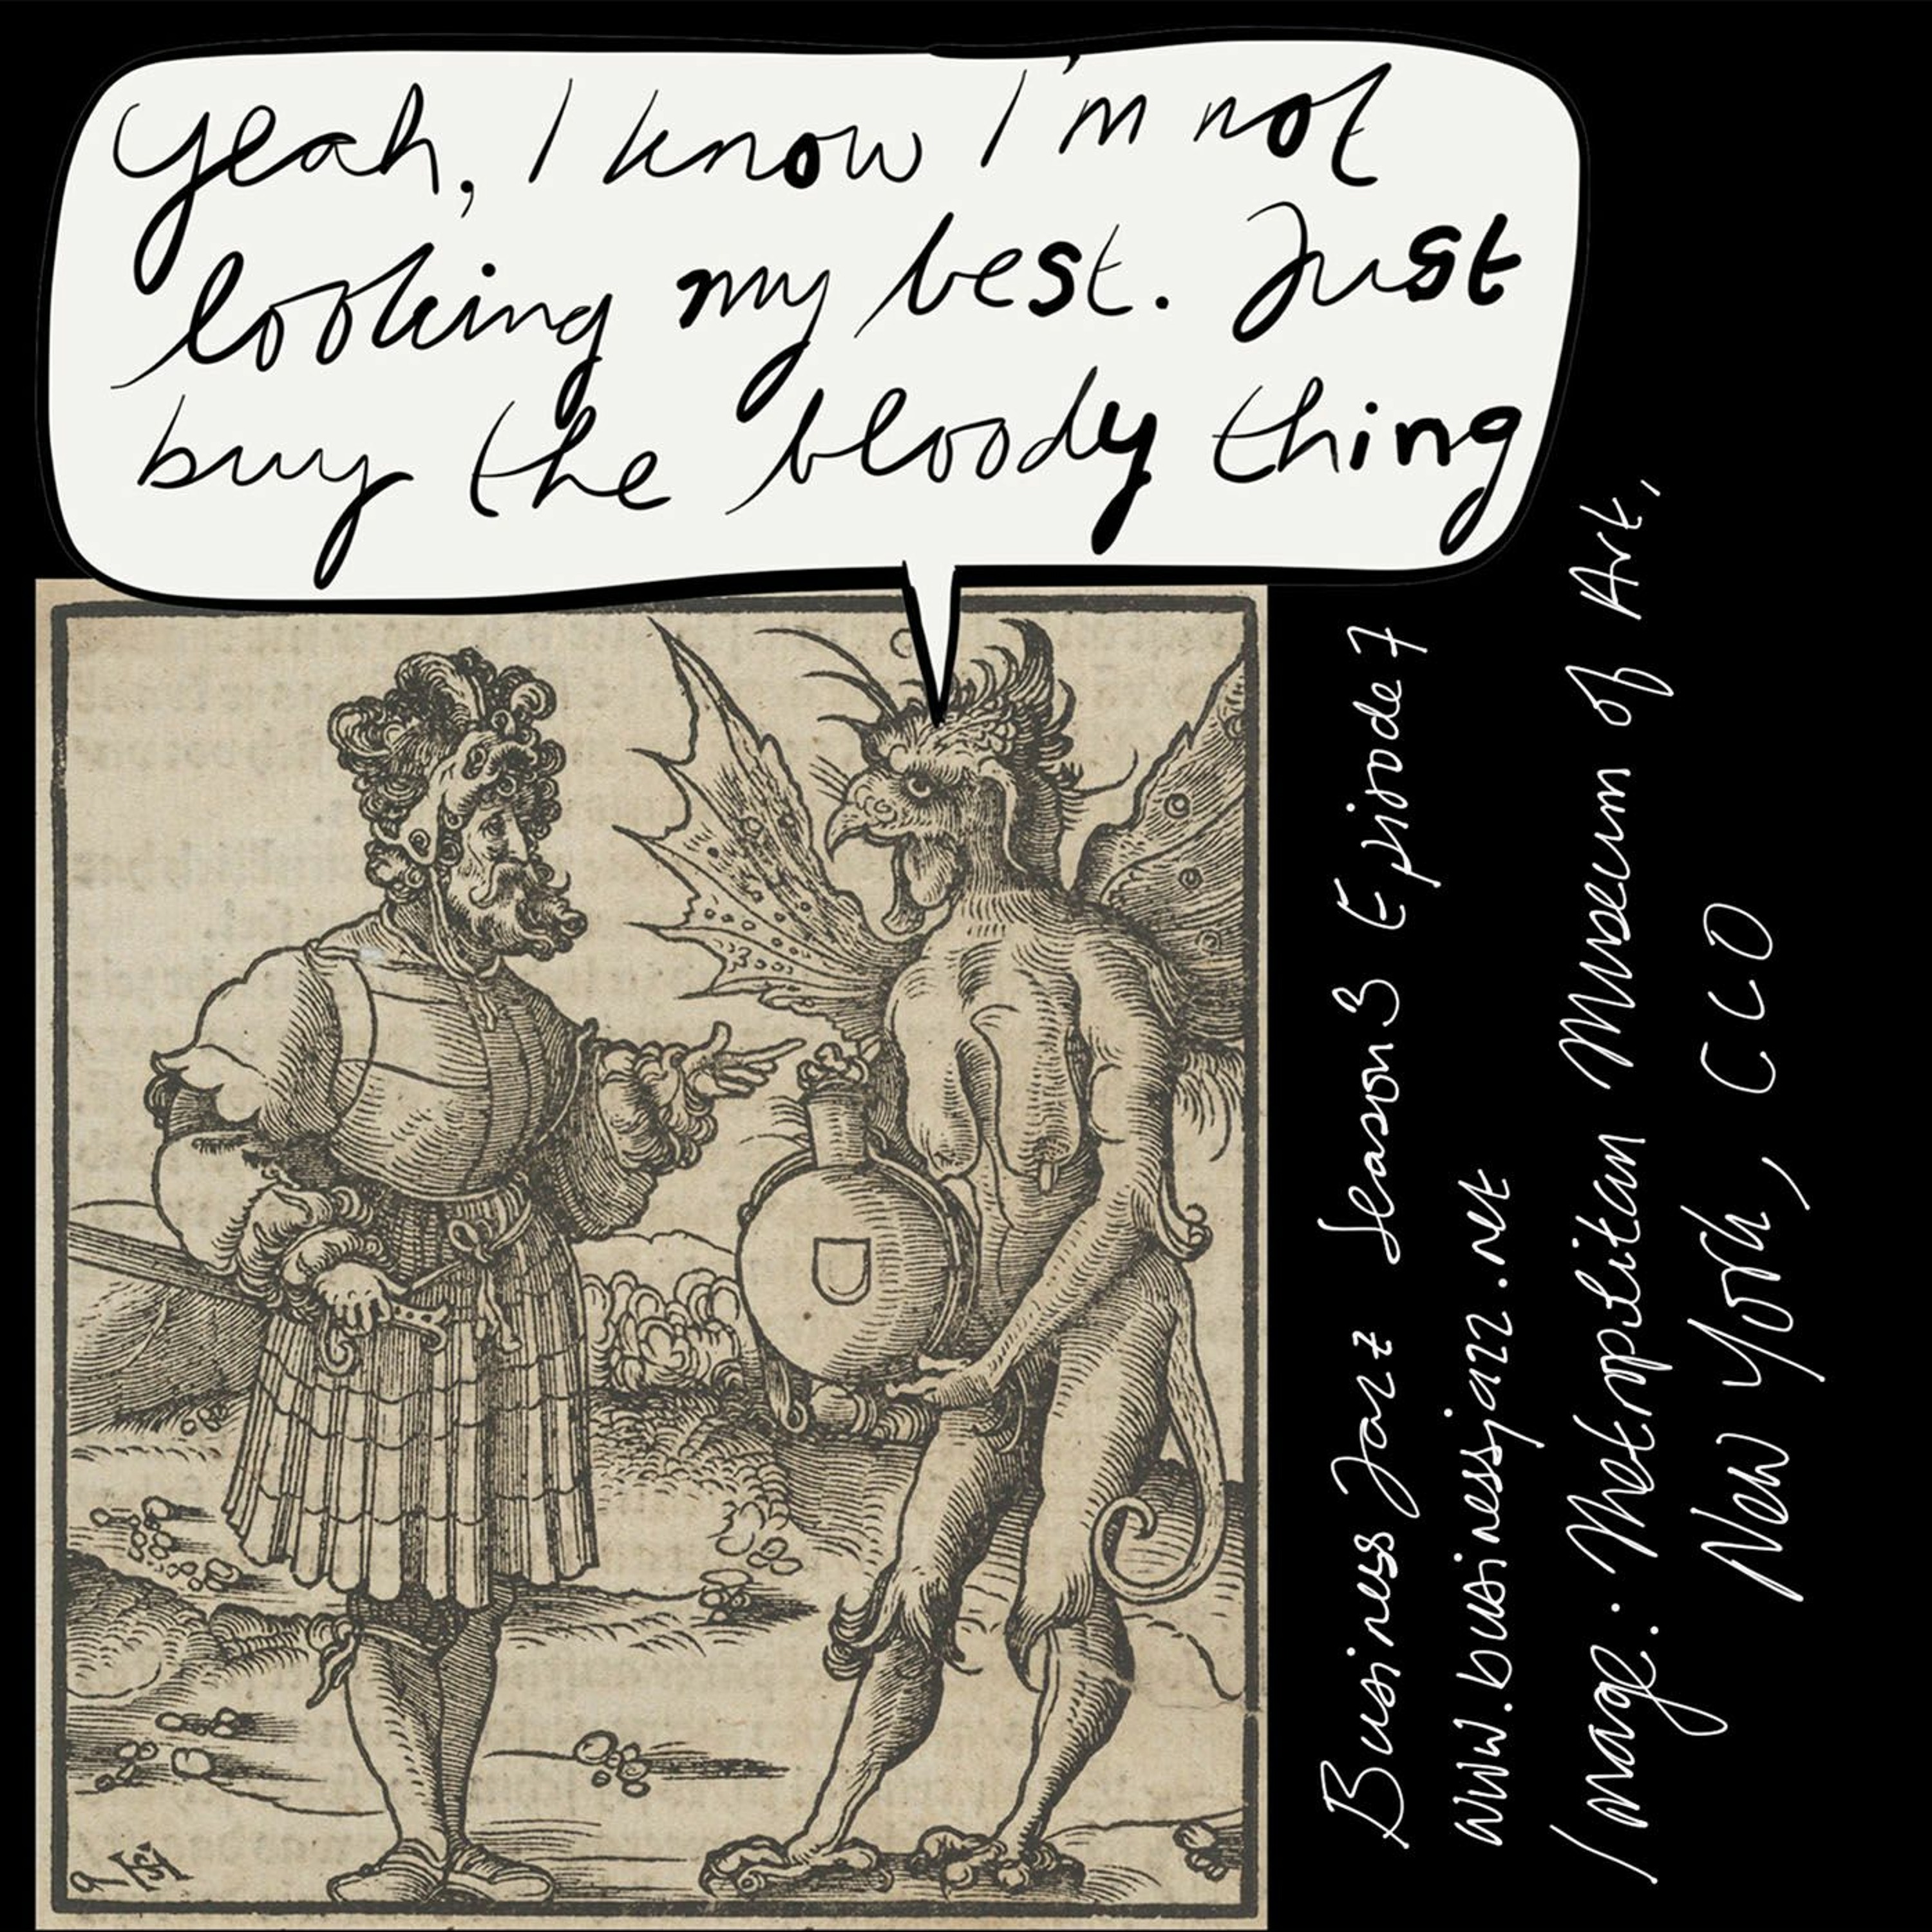 Yeah, I know I'm not
looking my best. Just
buy the bloody thing
Business Jazz Season 3 Episode 7
www.businessjazz.net
Image: Metropolitan Museum of Art,
New York, CC0